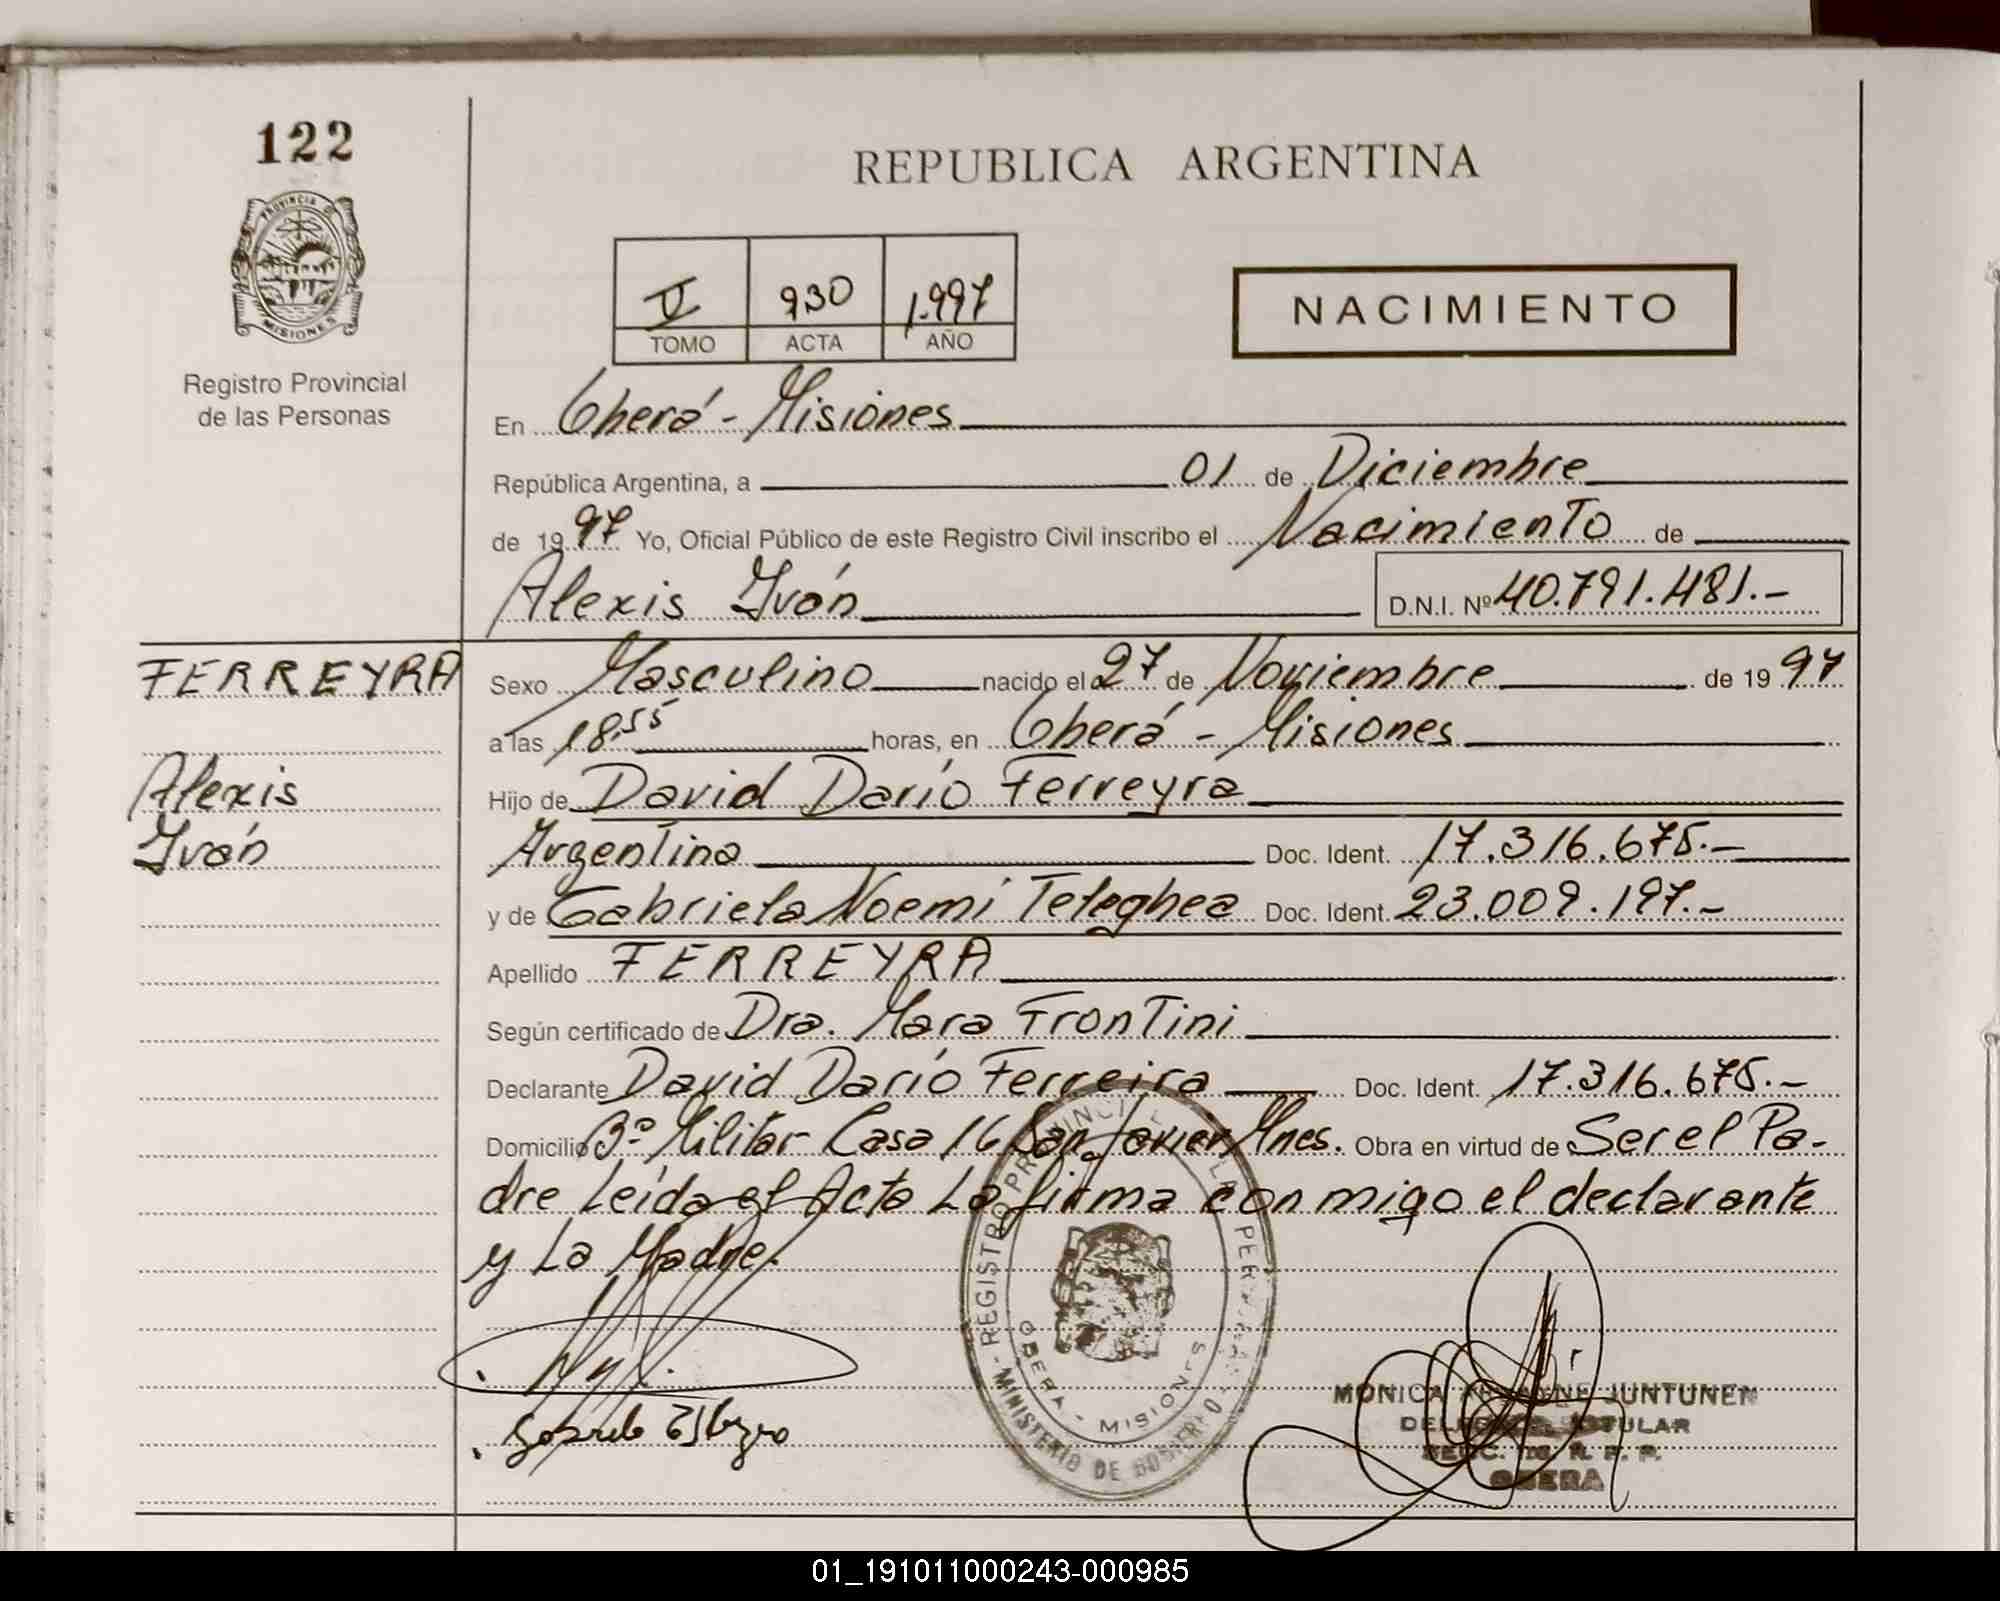 122
PROVINCIA DE
MISIONES
Registro Provincial
de las Personas
REPUBLICA ARGENTINA
V 930 1.997
TOMO ACTA AÑO
NACIMIENTO
En Oberá - Misiones
República Argentina, a 01 de Diciembre
de 19 97 Yo, Oficial Público de este Registro Civil inscribo el Nacimiento de
Alexis Iván D.N.I. Nº 40.791.481.-
FERREYRA
Alexis
Iván
Sexo Masculino nacido el 27 de Noviembre de 19 97
a las 18,55 horas, en Oberá - Misiones
Hijo de David Darío Ferreyra
Argentina Doc. Ident. 17.316.675.-
y de Gabriela Noemí Teleghea Doc. Ident. 23.009.197.-
Apellido FERREYRA
Según certificado de Dra. Mara Frontini
Declarante David Darío Ferreira Doc. Ident. 17.316.675.-
Domicilio Bº Militar Casa 16 San Javier Mnes. Obra en virtud de Ser el Pa-
dre Leída el Acta La firma conmigo el declarante
y La Madre.
REGISTRO PROVINCIAL DE LAS PERSONAS
OBERA - MISIONES
MINISTERIO DE GOBIERNO
MONICA JUNTUNEN
DELEGADA TITULAR
SECC. R. P. P.
OBERA
01_191011000243-000985